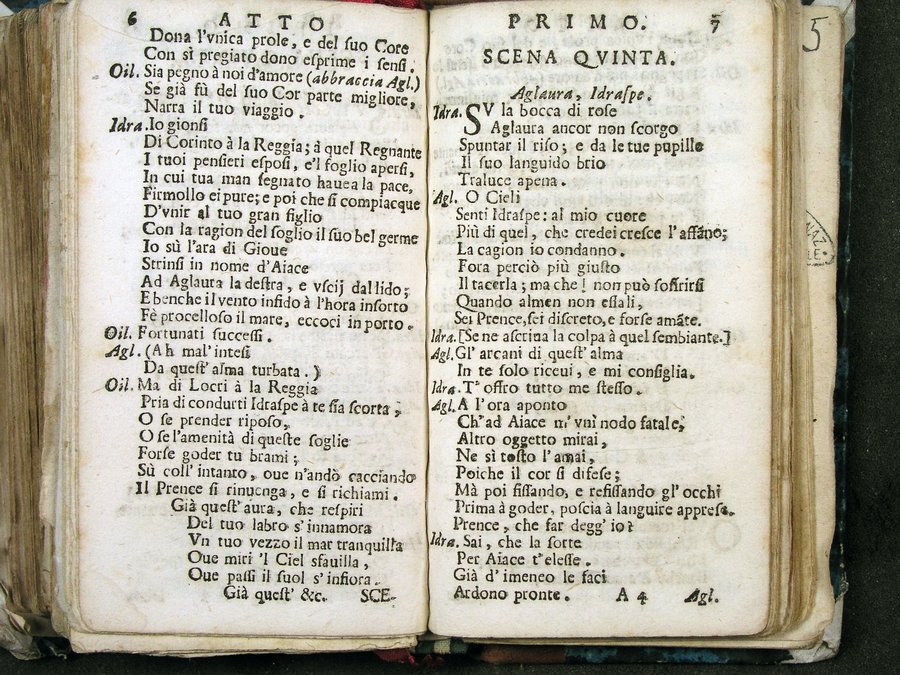 6 ATTO
Dona l'vnica prole, e del suo Core
Con sì pregiato dono esprime i sensi.
Oil. Sia pegno à noi d'amore (abbraccia Agl.)
Se già fù del suo Cor parte migliore,
Narra il tuo viaggio.
Idra. Io gionsi
Di Corinto à la Reggia; à quel Regnante
I tuoi pensieri esposi, e'l foglio apersi,
In cui tua man segnato hauea la pace,
Firmollo ei pure; e poi che si compiacque
D'vnir al tuo gran figlio
Con la ragion del soglio il suo bel germe
Io sù l'ara di Gioue
Strinsi in nome d'Aiace
Ad Aglaura la destra, e vscij dal lido;
E benche il vento infido à l'hora insorto
Fè procelloso il mare, eccoci in porto.
Oil. Fortunati successi.
Agl. (Ah mal'intesi
Da quest'alma turbata.)
Oil. Ma di Locri à la Reggia
Pria di condurti Idraspe à te sia scorta;
O se prender riposo,
O se l'amenità di queste soglie
Forse goder tu brami;
Sù coll'intanto, oue n'andò cacciando
Il Prence si rinuenga, e si richiami.
Già quest'aura, che respiri
Del tuo labro s'innamora
Vn tuo vezzo il mar tranquilla
Oue miri 'l Ciel sfauilla,
Oue passi il suol s'infiora.
Già quest' &c. SCE-
PRIMO. 7
5
SCENA QVINTA.
Aglaura, Idraspe.
Idra. SV la bocca di rose
Aglaura ancor non scorgo
Spuntar il riso; e da le tue pupille
Il suo languido brio
Traluce apena.
Agl. O Cieli
Senti Idraspe: al mio cuore
Più di quel, che credei cresce l'affãno;
La cagion io condanno.
Fora perciò più giusto
Il tacerla; ma che! non può soffrirsi
Quando almen non essali,
Sei Prence, sei discreto, e forse amãte.
Idra. [Se ne ascriua la colpa à quel sembiante.]
Agl. Gl' arcani di quest'alma
In te solo riceui, e mi consiglia.
Idra. T' offro tutto me stesso.
Agl. A l'ora aponto
Ch'ad Aiace m'vnì nodo fatale,
Altro oggetto mirai,
Ne sì tosto l'amai,
Poiche il cor si difese;
Mà poi fissando, e refissando gl' occhi
Prima à goder, poscia à languire apprese.
Prence, che far degg'io?
Idra. Sai, che la sorte
Per Aiace t'elesse.
Già d'imeneo le faci
Ardono pronte. A 4 Agl.